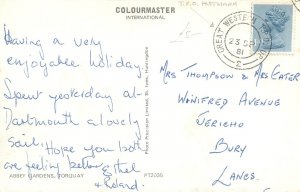 COLOURMASTER
INTERNATIONAL
T.P.O. POSTMARK
Having a very
enjoyable holiday.
Spent yesterday at
Dartmouth a lovely
sail. Hope you both
are feeling better
Ethel
& Roland.
ABBEY GARDENS, TORQUAY
PT22035
Photo Precision Limited, St. Ives, Huntingdon
GREAT WESTERN
23 SP
81
2
Mrs Thompson & Mrs Eater
Winifred Avenue
Jericho
Bury
Lancs.